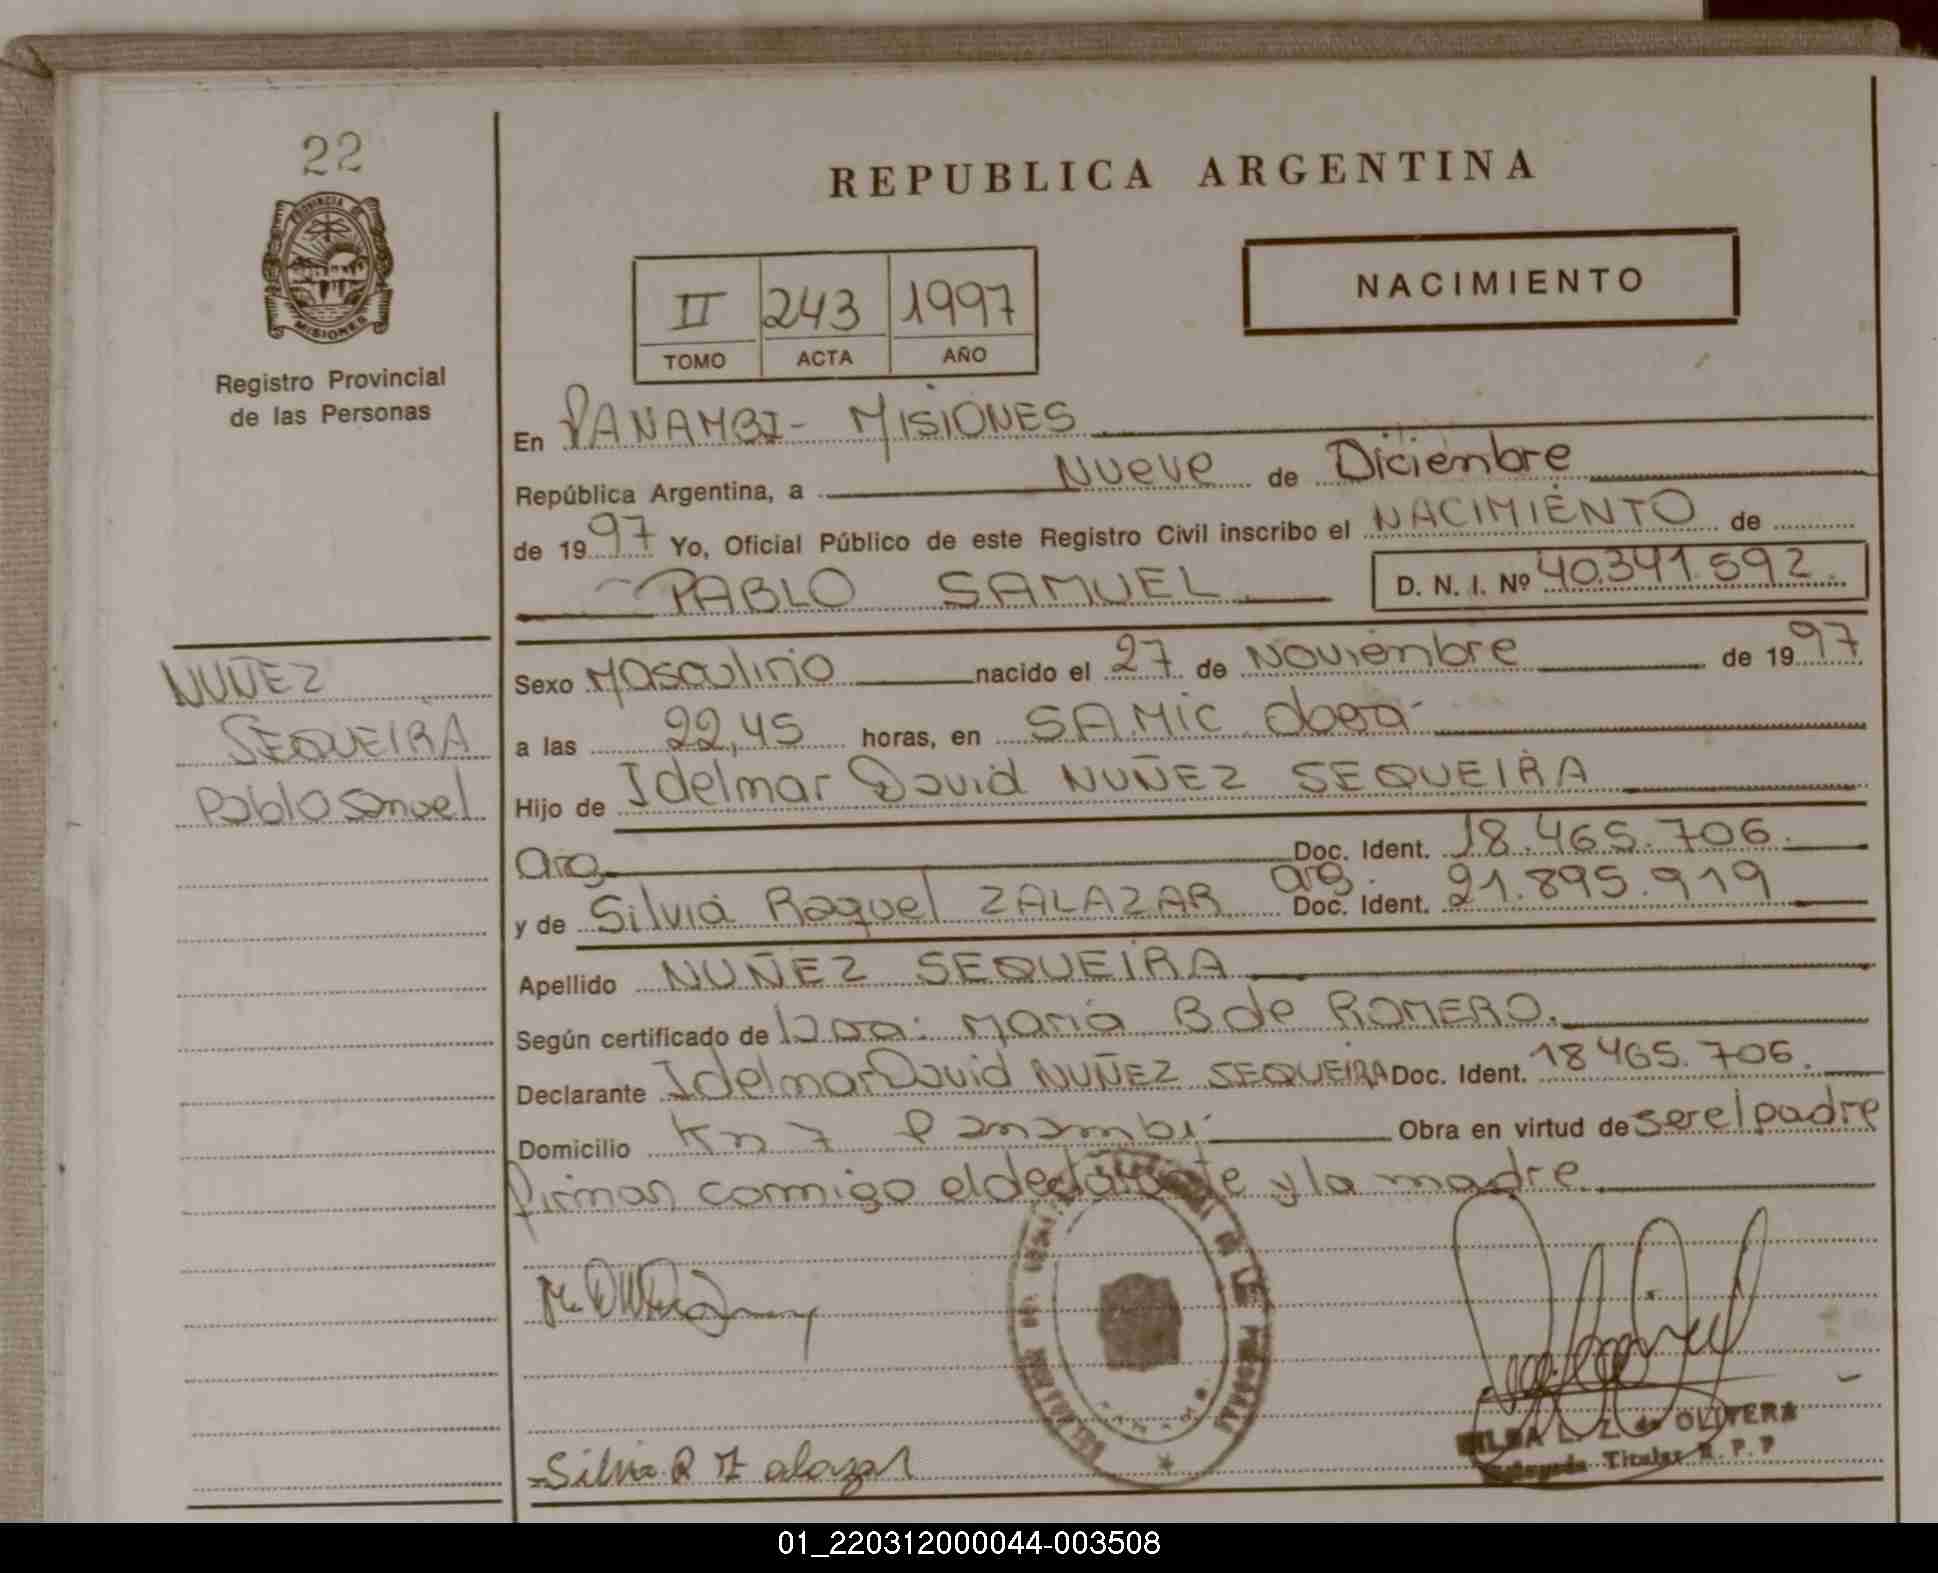 22
PROVINCIA DE
MISIONES
Registro Provincial
de las Personas
NUÑEZ
SEQUEIRA
Pablo Samuel
REPUBLICA ARGENTINA
II 243 1997
TOMO ACTA AÑO
NACIMIENTO
En PANAMBI - MISIONES
República Argentina, a Nueve de Diciembre
de 1997 Yo, Oficial Público de este Registro Civil inscribo el NACIMIENTO de
PABLO SAMUEL D. N. I. Nº 40.341.592.
Sexo Masculino nacido el 27 de Noviembre de 1997
a las 22,45 horas, en SAMIC Obera
Hijo de Idelmar David NUÑEZ SEQUEIRA
Arg. Doc. Ident. 18.465.706.
y de Silvia Raquel ZALAZAR arg. Doc. Ident. 21.895.919
Apellido NUÑEZ SEQUEIRA
Según certificado de Dra: Maria B de ROMERO.
Declarante Idelmar David NUÑEZ SEQUEIRA Doc. Ident. 18465.706.
Domicilio Km 7 Panambi Obra en virtud de ser el padre
firman conmigo el declarante y la madre
Silvia R Zalazar
L. Z. de OLIVERA
Titular R. P. P
01_220312000044-003508